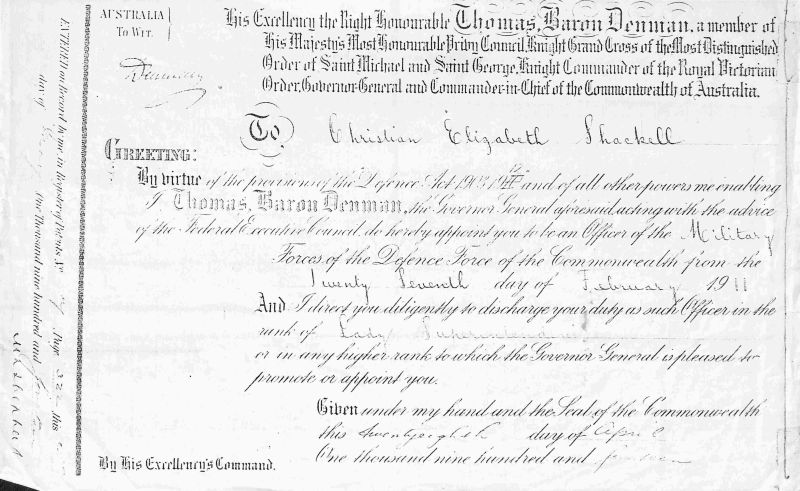 AUSTRALIA
TO WIT.
Denman
His Excellency the Right Honourable Thomas, Baron Denman, a member of
His Majesty's Most Honourable Privy Council, Knight Grand Cross of the Most Distinguished
Order of Saint Michael and Saint George, Knight Commander of the Royal Victorian
Order, Governor-General and Commander-in-Chief of the Commonwealth of Australia.
To Christian Elizabeth Shackell
GREETING:
By virtue of the provisions of the Defence Act 1903 and of all other powers me enabling
I Thomas, Baron Denman, the Governor General aforesaid, acting with the advice
of the Federal Executive Council, do hereby appoint you to be an Officer of the Military
Forces of the Defence Force of the Commonwealth from the
Twenty Seventh day of February 1911
And I direct you diligently to discharge your duty as such Officer in the
rank of Lady Superintendent
or in any higher rank to which the Governor General is pleased to
promote or appoint you.
Given under my hand and the Seal of the Commonwealth
this twentyeighth day of April
One thousand nine hundred and fourteen
By His Excellency's Command.
ENTERED on Record by me in Register of Patents No. Page this
day of One Thousand nine hundred and